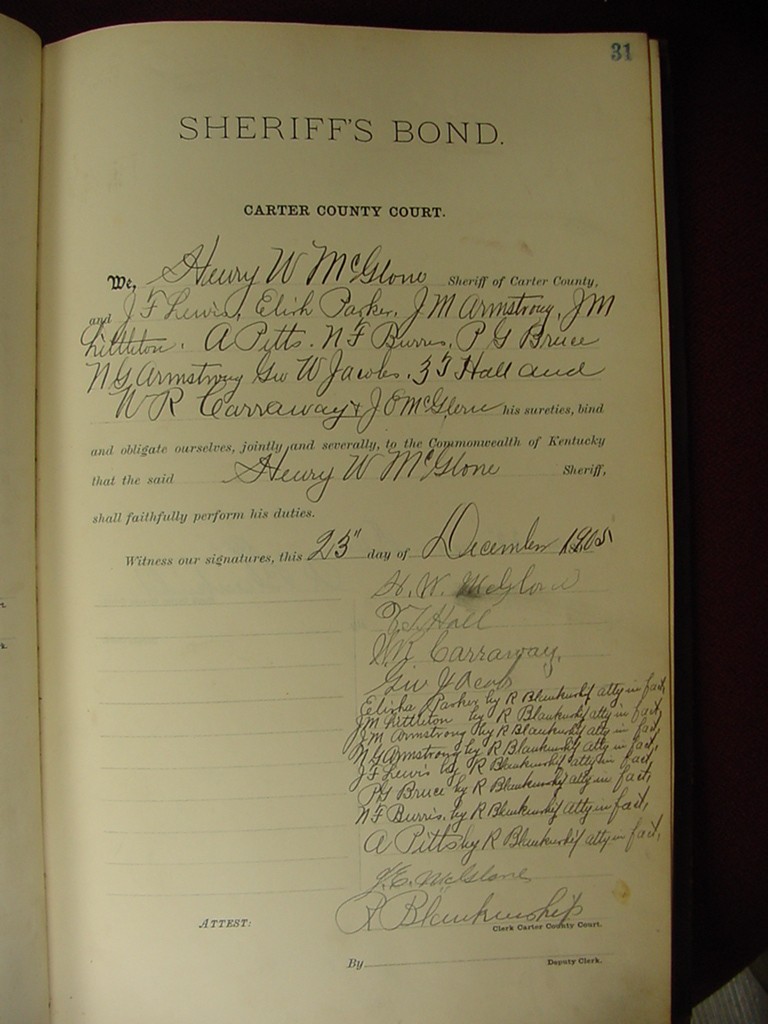 31
SHERIFF'S BOND.
CARTER COUNTY COURT.
We, Henry W McGlone Sheriff of Carter County,
and J F Lewis, Elish Parker, J M Armstrong, J M
Littleton, A Pitts. N F Burris, P G Bruce
N G Armstrong Geo W Jacobs. Z T Hall and
W R Carraway & J O McGlone his sureties, bind
and obligate ourselves, jointly and severally, to the Commonwealth of Kentucky
that the said Henry W McGlone Sheriff,
shall faithfully perform his duties.
Witness our signatures, this 23" day of December 1905
H. W. McGlone
Z. T. Hall
Carraway.
Geo Jacobs
Elisha Parker by R Blankenship atty in fact,
J M Littleton by R Blankenship atty in fact,
J M Armstrong by R Blankenship atty in fact,
N G Armstrong by R Blankenship atty in fact,
J F Lewis by R Blankenship atty in fact,
P G Bruce by R Blankenship atty in fact,
N F Burris. by R Blankenship atty in fact,
A Pitts by R Blankenship atty in fact,
McGlone
R Blankenship
ATTEST: Clerk Carter County Court.
By Deputy Clerk.